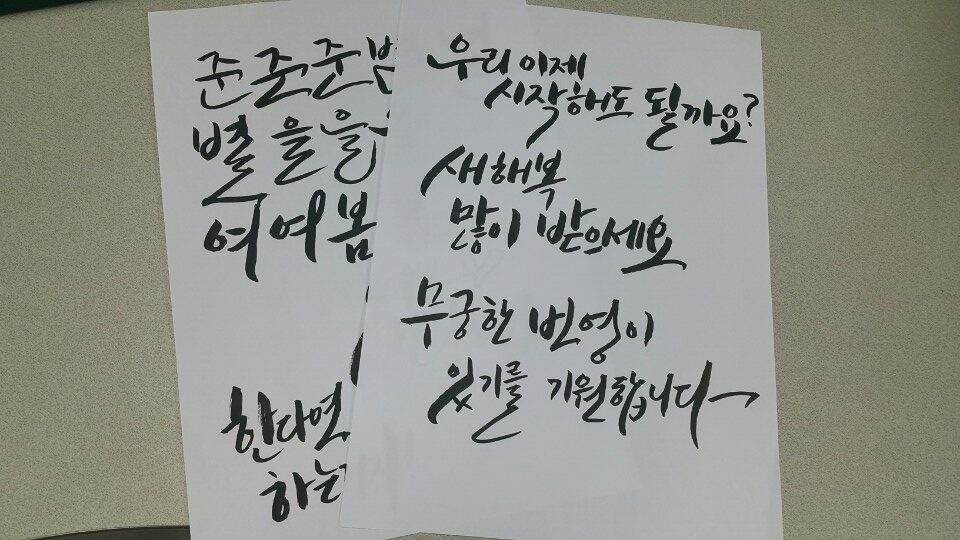 준 준 준
별 을 을
여 여 봄
한다면
하는
우리 이제
시작해도 될까요?
새해 복
많이 받으세요
무궁한 번영이
있기를 기원합니다